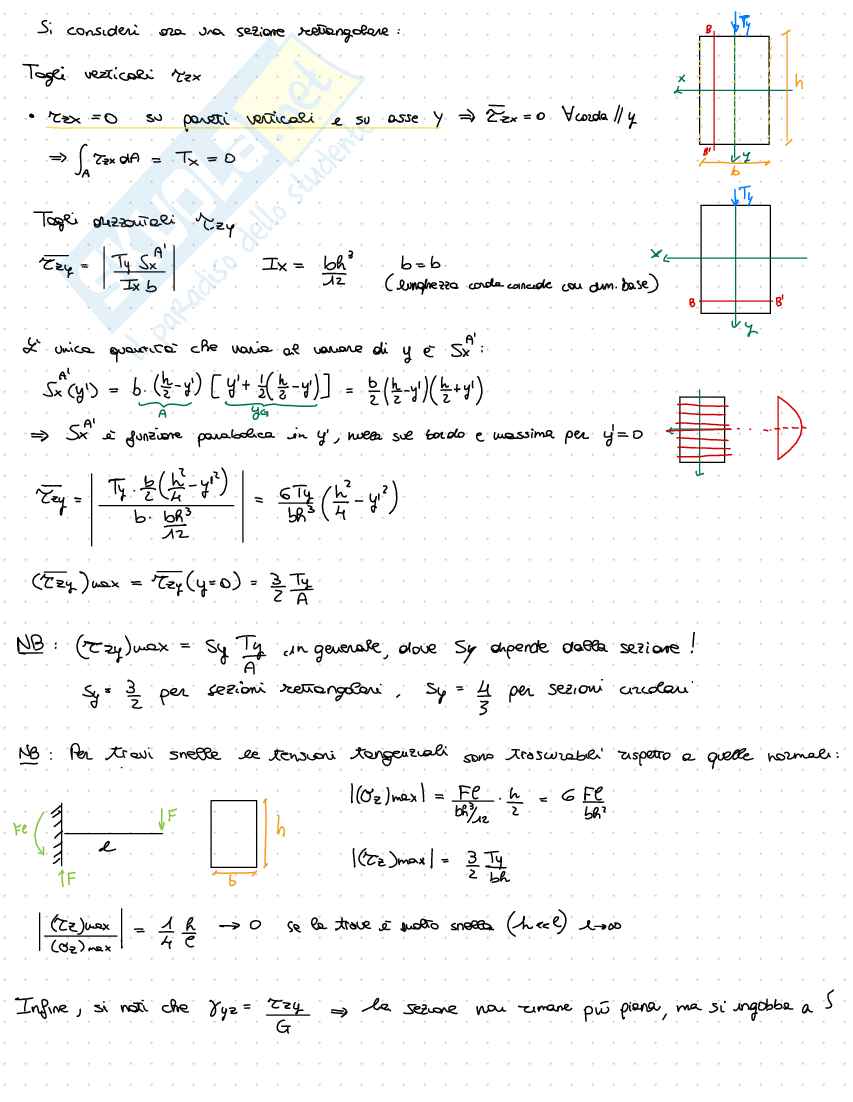 Si consideri ora una sezione rettangolare:
Tagli verticali τzx
• τzx = 0 su pareti verticali e su asse y ⇒ τ̅zx = 0 ∀ corda // y
⇒ ∫_A τzx dA = Tx = 0
Ty
B
x
h
B'
y
b
Tagli orizzontali τzy
τ̅zy = | Ty Sx^A' / Ix b | Ix = bh³/12 b = b
(lunghezza corda coincide con dim. base)
Ty
x
B B'
y
L'unica quantità che varia al variare di y è Sx^A':
Sx^A'(y') = b·(h/2 - y') [y' + 1/2(h/2 - y')] = b/2 (h/2 - y')(h/2 + y')
A yG
⇒ Sx^A' è funzione parabolica in y', nulla sul bordo e massima per y' = 0
τ̅zy = | Ty · b/2 (h²/4 - y'²) / b · bh³/12 | = 6Ty/bh³ (h²/4 - y'²)
(τ̅zy)max = τ̅zy (y=0) = 3/2 Ty/A
NB: (τzy)max = Sy Ty/A in generale, dove Sy dipende dalla sezione!
Sy = 3/2 per sezioni rettangolari, Sy = 4/3 per sezioni circolari
NB: Per travi snelle le tensioni tangenziali sono trascurabili rispetto a quelle normali:
|(σz)max| = Fl / bh³/12 · h/2 = 6 Fl/bh²
Fl F h
l
F b
|(τz)max| = 3/2 Ty/bh
| (τz)max / (σz)max | = 1/4 h/l → 0 se la trave è molto snella (h<<l) l→∞
Infine, si noti che γyz = τzy/G ⇒ la sezione non rimane più piana, ma si ingobba a S
SKUOLA.net
il paradiso dello studente